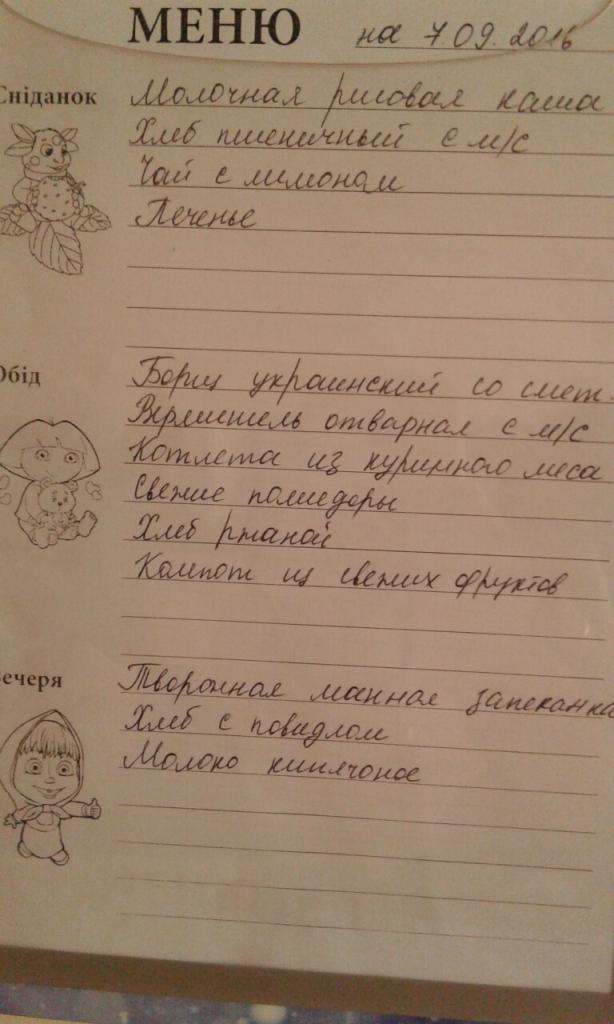 МЕНЮ на 7.09.2016
Сніданок Молочная рисовая каша
Хлеб пшеничный с м/с
Чай с лимоном
Печенье
Обід Борщ украинский со смет.
Вермишель отварная с м/с
Котлета из куринного мяса
Свежие помидоры
Хлеб ржаной
Компот из свежих фруктов
Вечеря Творожная манная запеканка
Хлеб с повидлом
Молоко кипячоное